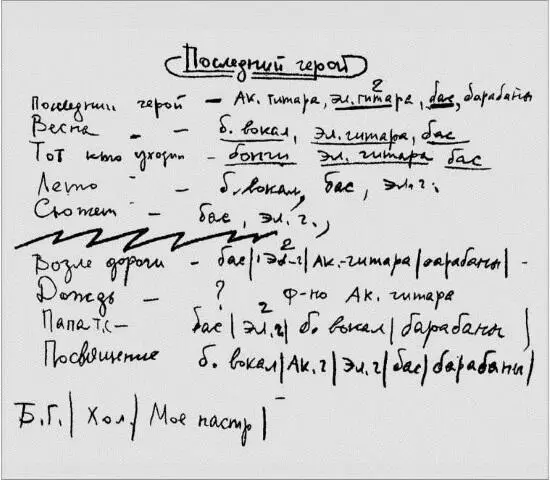 Последний герой
Последний герой – Ак. гитара, эл. гитара 2, бас, барабаны
Весна – б. вокал, эл. гитара, бас
Тот кто уходит – бонги эл. гитара бас
Лето – б. вокал, бас, эл. г.
Сюжет – бас, эл. г.,
Возле дороги – бас | эл-г 2 | Ак.-гитара | барабаны | -
Дождь – ? ф-но Ак. гитара
Папа т.с – бас | эл. г 2 | б. вокал | барабаны |
Посвящение б. вокал | Ак. г | Эл. г | бас | барабаны |
Б.Г. | Хол. | Мое настр |